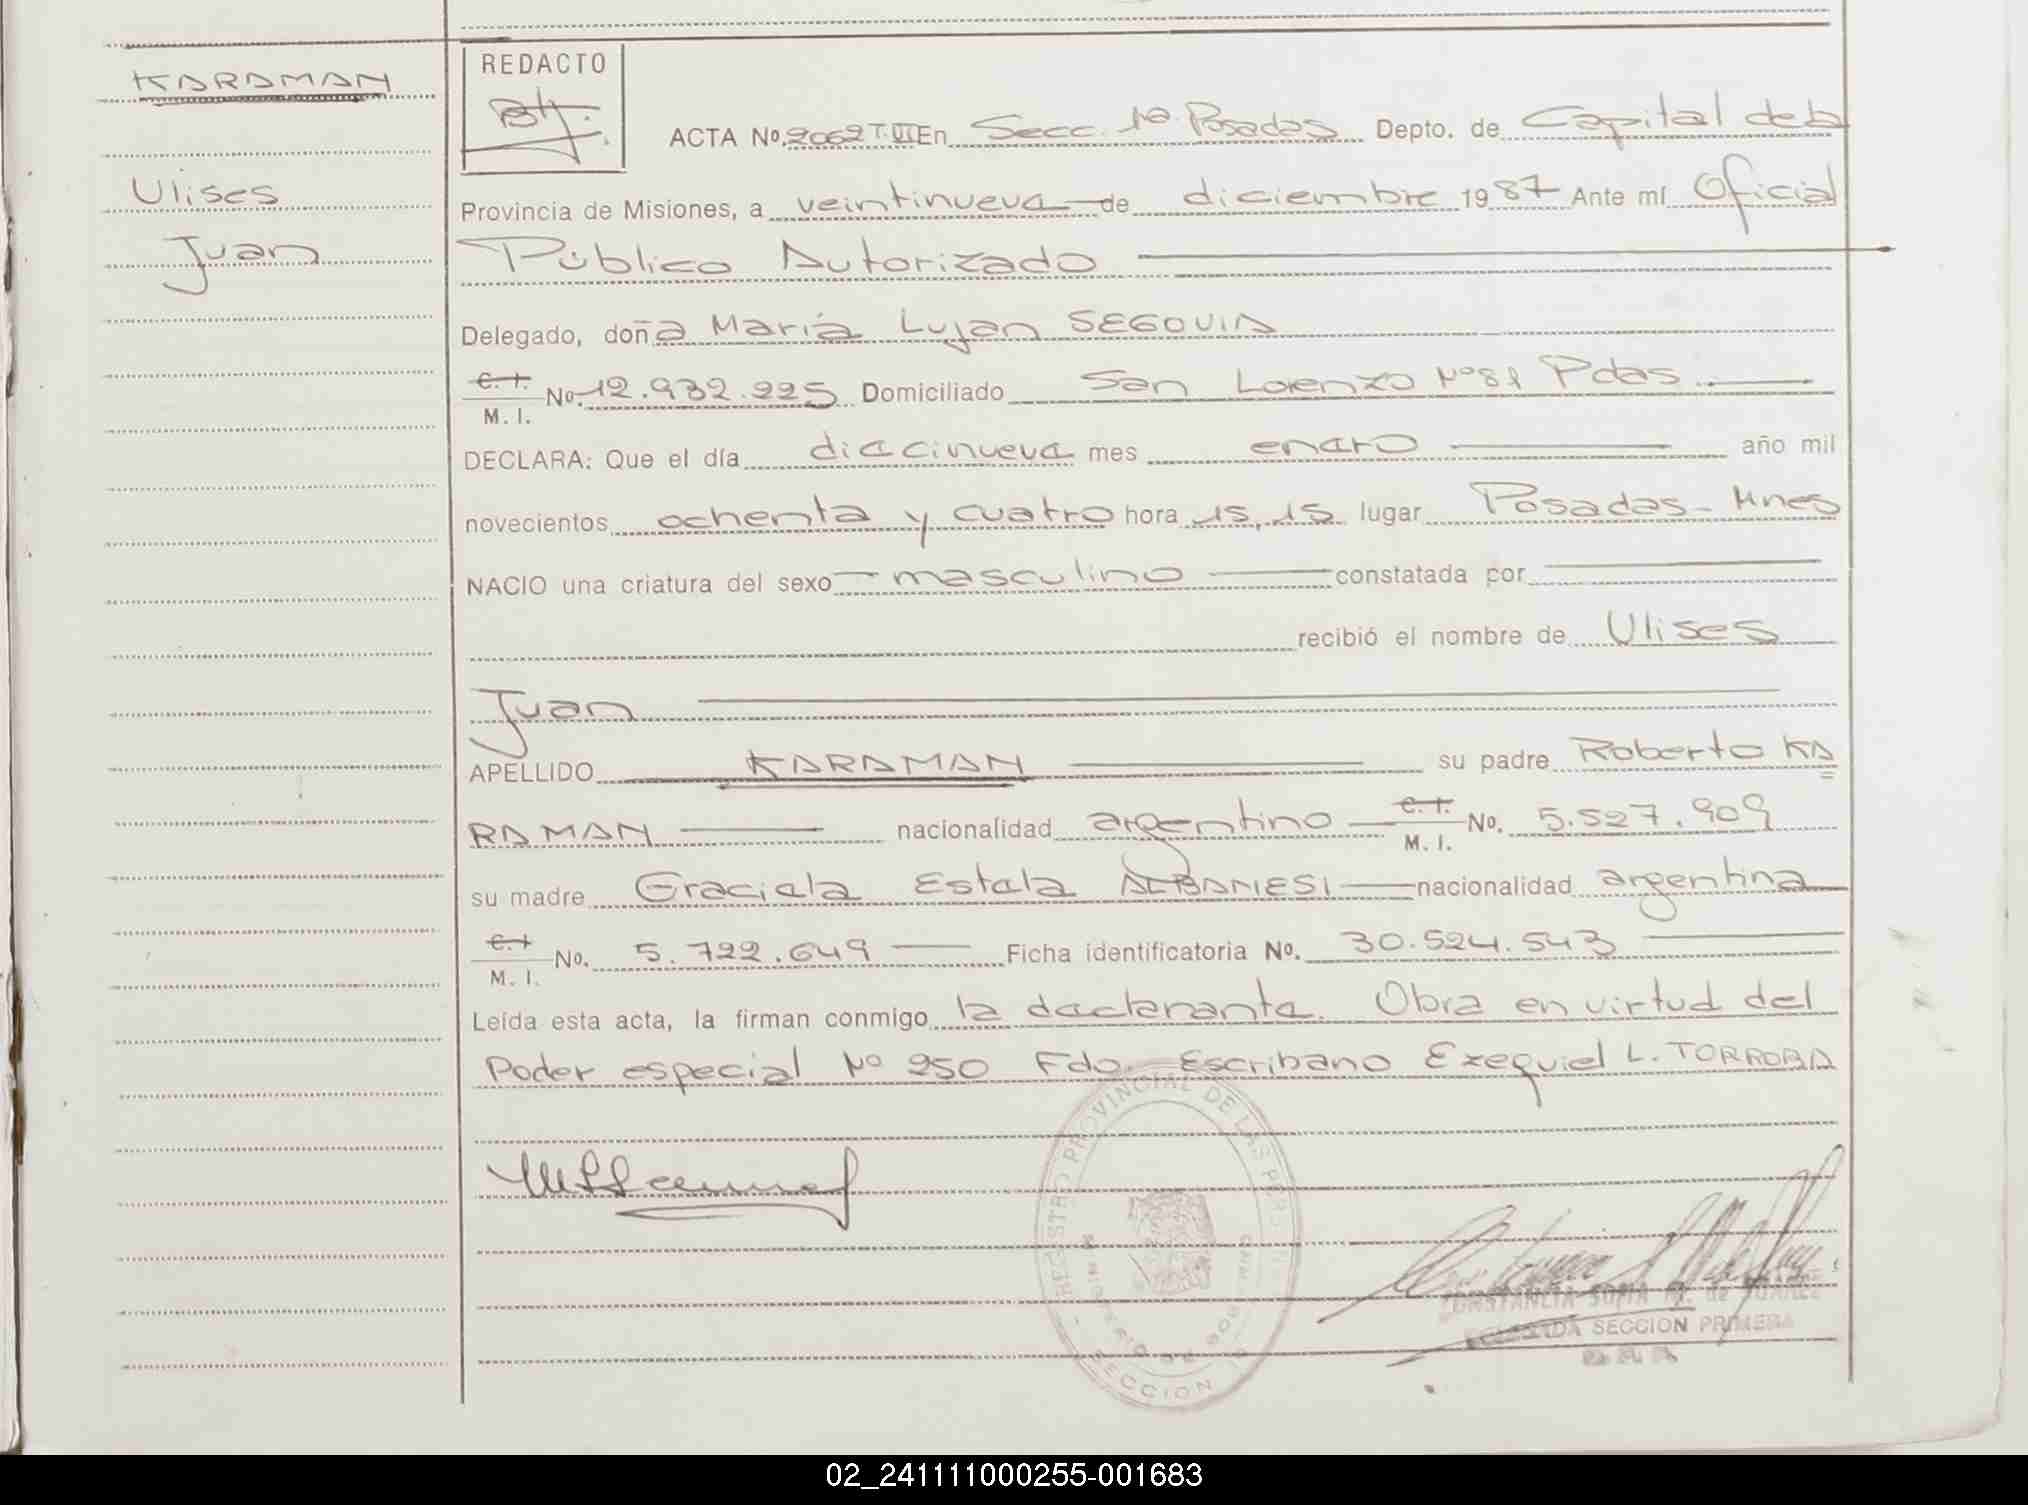 KARAMAN
Ulises
Juan
REDACTO
ACTA No. 2062 T. VI En Secc. 1ª Posadas Depto. de Capital de la
Provincia de Misiones, a veintinueve de diciembre 1987 Ante mí Oficial
Público Autorizado
Delegado, doña María Lujan SEGOVIA
C. I.
M. I. No. 12.932.225 Domiciliado San Lorenzo Nº 81 Pdas.
DECLARA: Que el día diecinueve mes enero año mil
novecientos ochenta y cuatro hora 15,15 lugar Posadas - Mnes
NACIO una criatura del sexo masculino constatada por
recibió el nombre de Ulises
Juan
APELLIDO KARAMAN su padre Roberto KA
RAMAN nacionalidad argentino C. I.
M. I. No. 5.527.909
su madre Graciela Estela ALBANESI nacionalidad argentina
C. I
M. I. No. 5.722.649 Ficha identificatoria No. 30.524.543
Leída esta acta, la firman conmigo la declarante. Obra en virtud del
Poder especial Nº 250 Fdo. Escribano Exequiel L. TORROBA
REGISTRO PROVINCIAL DE LAS PERSONAS
MINISTERIO DE GOB
SECCION
CONSTANCIA SOFIA de JUAREZ
DELEGADA SECCION PRIMERA
02_241111000255-001683